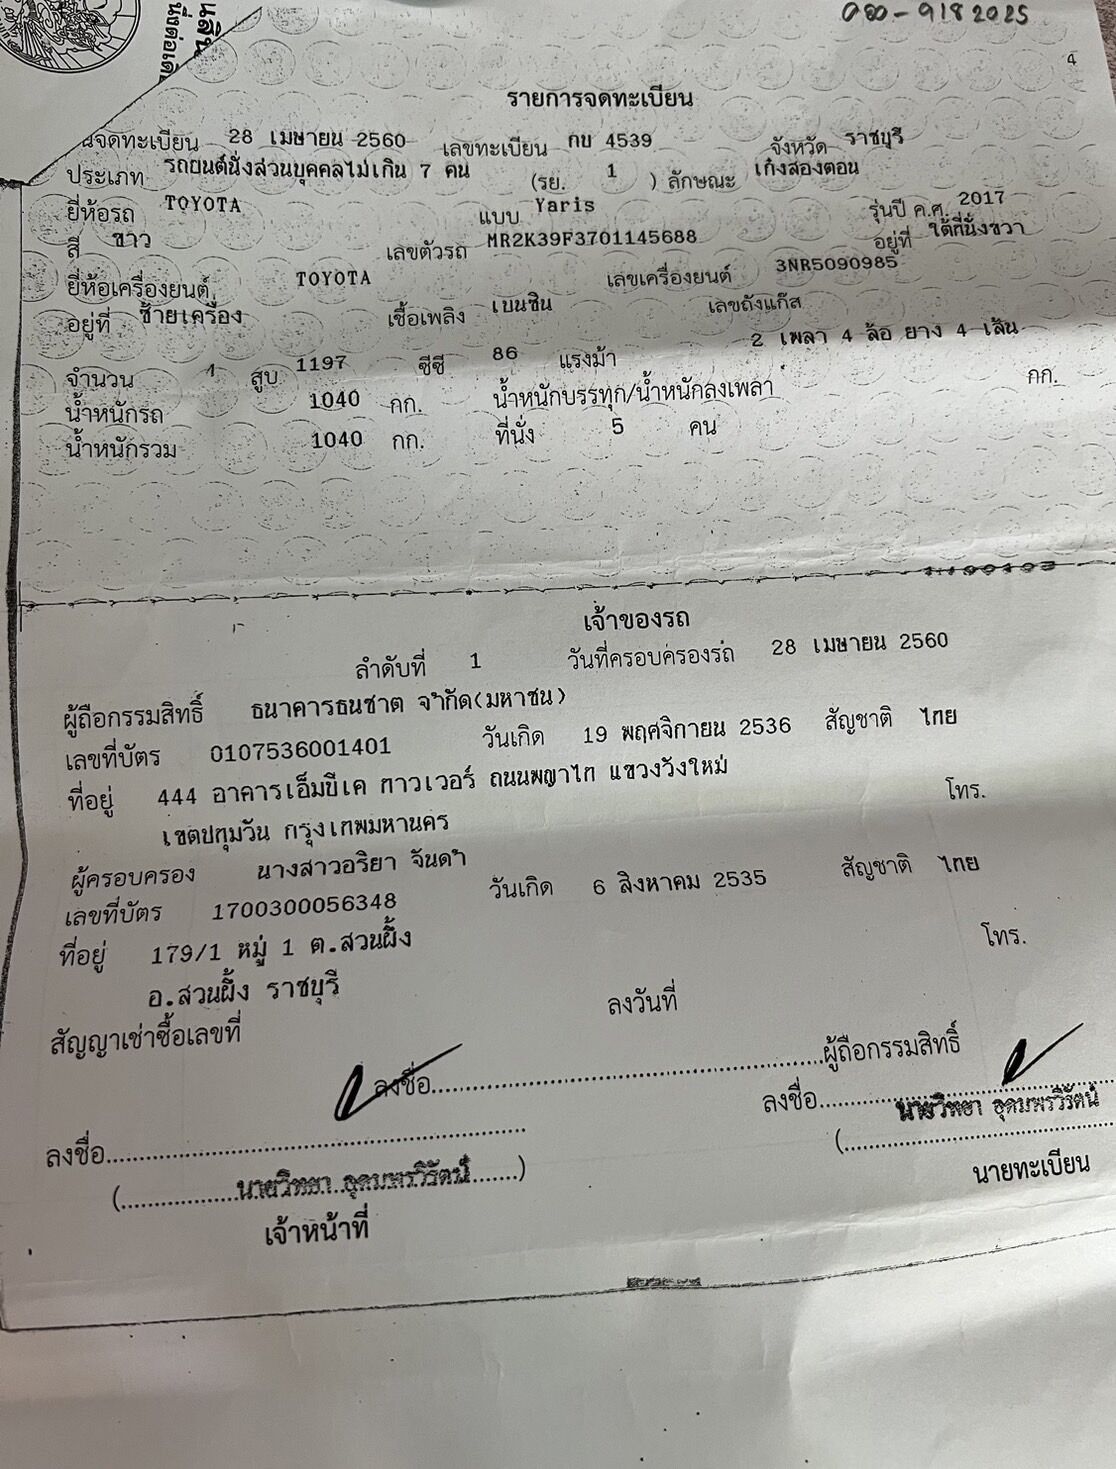 4
รายการจดทะเบียน
จดทะเบียน 28 เมษายน 2560 เลขทะเบียน กบ 4539 จังหวัด ราชบุรี
ประเภท รถยนต์นั่งส่วนบุคคลไม่เกิน 7 คน (รย. 1 ) ลักษณะ เก๋งสองตอน
ยี่ห้อรถ TOYOTA แบบ Yaris รุ่นปี ค.ศ. 2017
สี ขาว เลขตัวรถ MR2K39F3701145688 อยู่ที่ ใต้ที่นั่งขวา
ยี่ห้อเครื่องยนต์ TOYOTA เลขเครื่องยนต์ 3NR5090985
อยู่ที่ ซ้ายเครื่อง เชื้อเพลิง เบนซิน เลขถังแก๊ส
จำนวน 4 สูบ 1197 ซีซี 86 แรงม้า 2 เพลา 4 ล้อ ยาง 4 เส้น
น้ำหนักรถ 1040 กก. น้ำหนักบรรทุก/น้ำหนักลงเพลา กก.
น้ำหนักรวม 1040 กก. ที่นั่ง 5 คน
เจ้าของรถ
ลำดับที่ 1 วันที่ครอบครองรถ 28 เมษายน 2560
ผู้ถือกรรมสิทธิ์ ธนาคารธนชาต จำกัด(มหาชน)
เลขที่บัตร 0107536001401 วันเกิด 19 พฤศจิกายน 2536 สัญชาติ ไทย
ที่อยู่ 444 อาคารเอ็มบีเค ทาวเวอร์ ถนนพญาไท แขวงวังใหม่ โทร.
เขตปทุมวัน กรุงเทพมหานคร
ผู้ครอบครอง นางสาวอริยา จันดำ
เลขที่บัตร 1700300056348 วันเกิด 6 สิงหาคม 2535 สัญชาติ ไทย
ที่อยู่ 179/1 หมู่ 1 ต.สวนผึ้ง โทร.
อ.สวนผึ้ง ราชบุรี
สัญญาเช่าซื้อเลขที่ ลงวันที่
ลงชื่อ ผู้ถือกรรมสิทธิ์
ลงชื่อ ลงชื่อ
(นายวิทยา อุดมพรวิรัตน์) (นายวิทยา อุดมพรวิรัตน์
เจ้าหน้าที่ นายทะเบียน